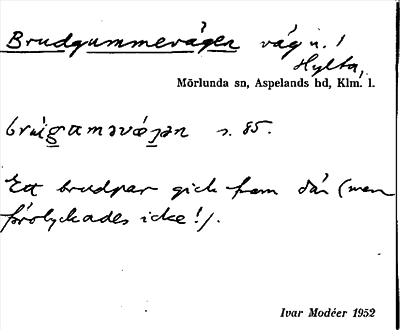 Brudgummevägen väg n. /
Hylta,
Mörlunda sn, Aspelands hd, Klm. l.
brúigaməvǽjən s. 85.
Ett brudpar gick fram där (men
förolyckades icke!).
Ivar Modéer 1952